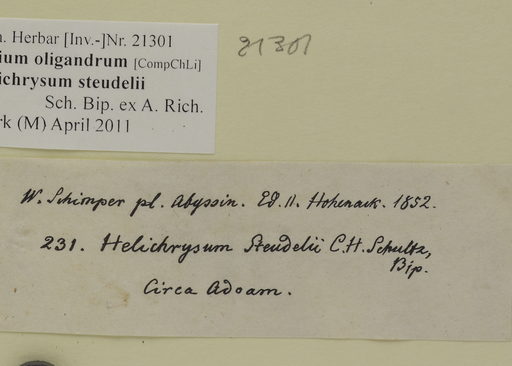 . Herbar [Inv.-]Nr. 21301
ium oligandrum [CompChLi]
ichrysum steudelii
Sch. Bip. ex A. Rich.
rk (M) April 2011
21301
W. Schimper pl. Abyssin. Ed. II. Hohenack. 1852.
231. Helichrysum Steudelii C.H. Schultz,
Bip.
Circa Adoam.